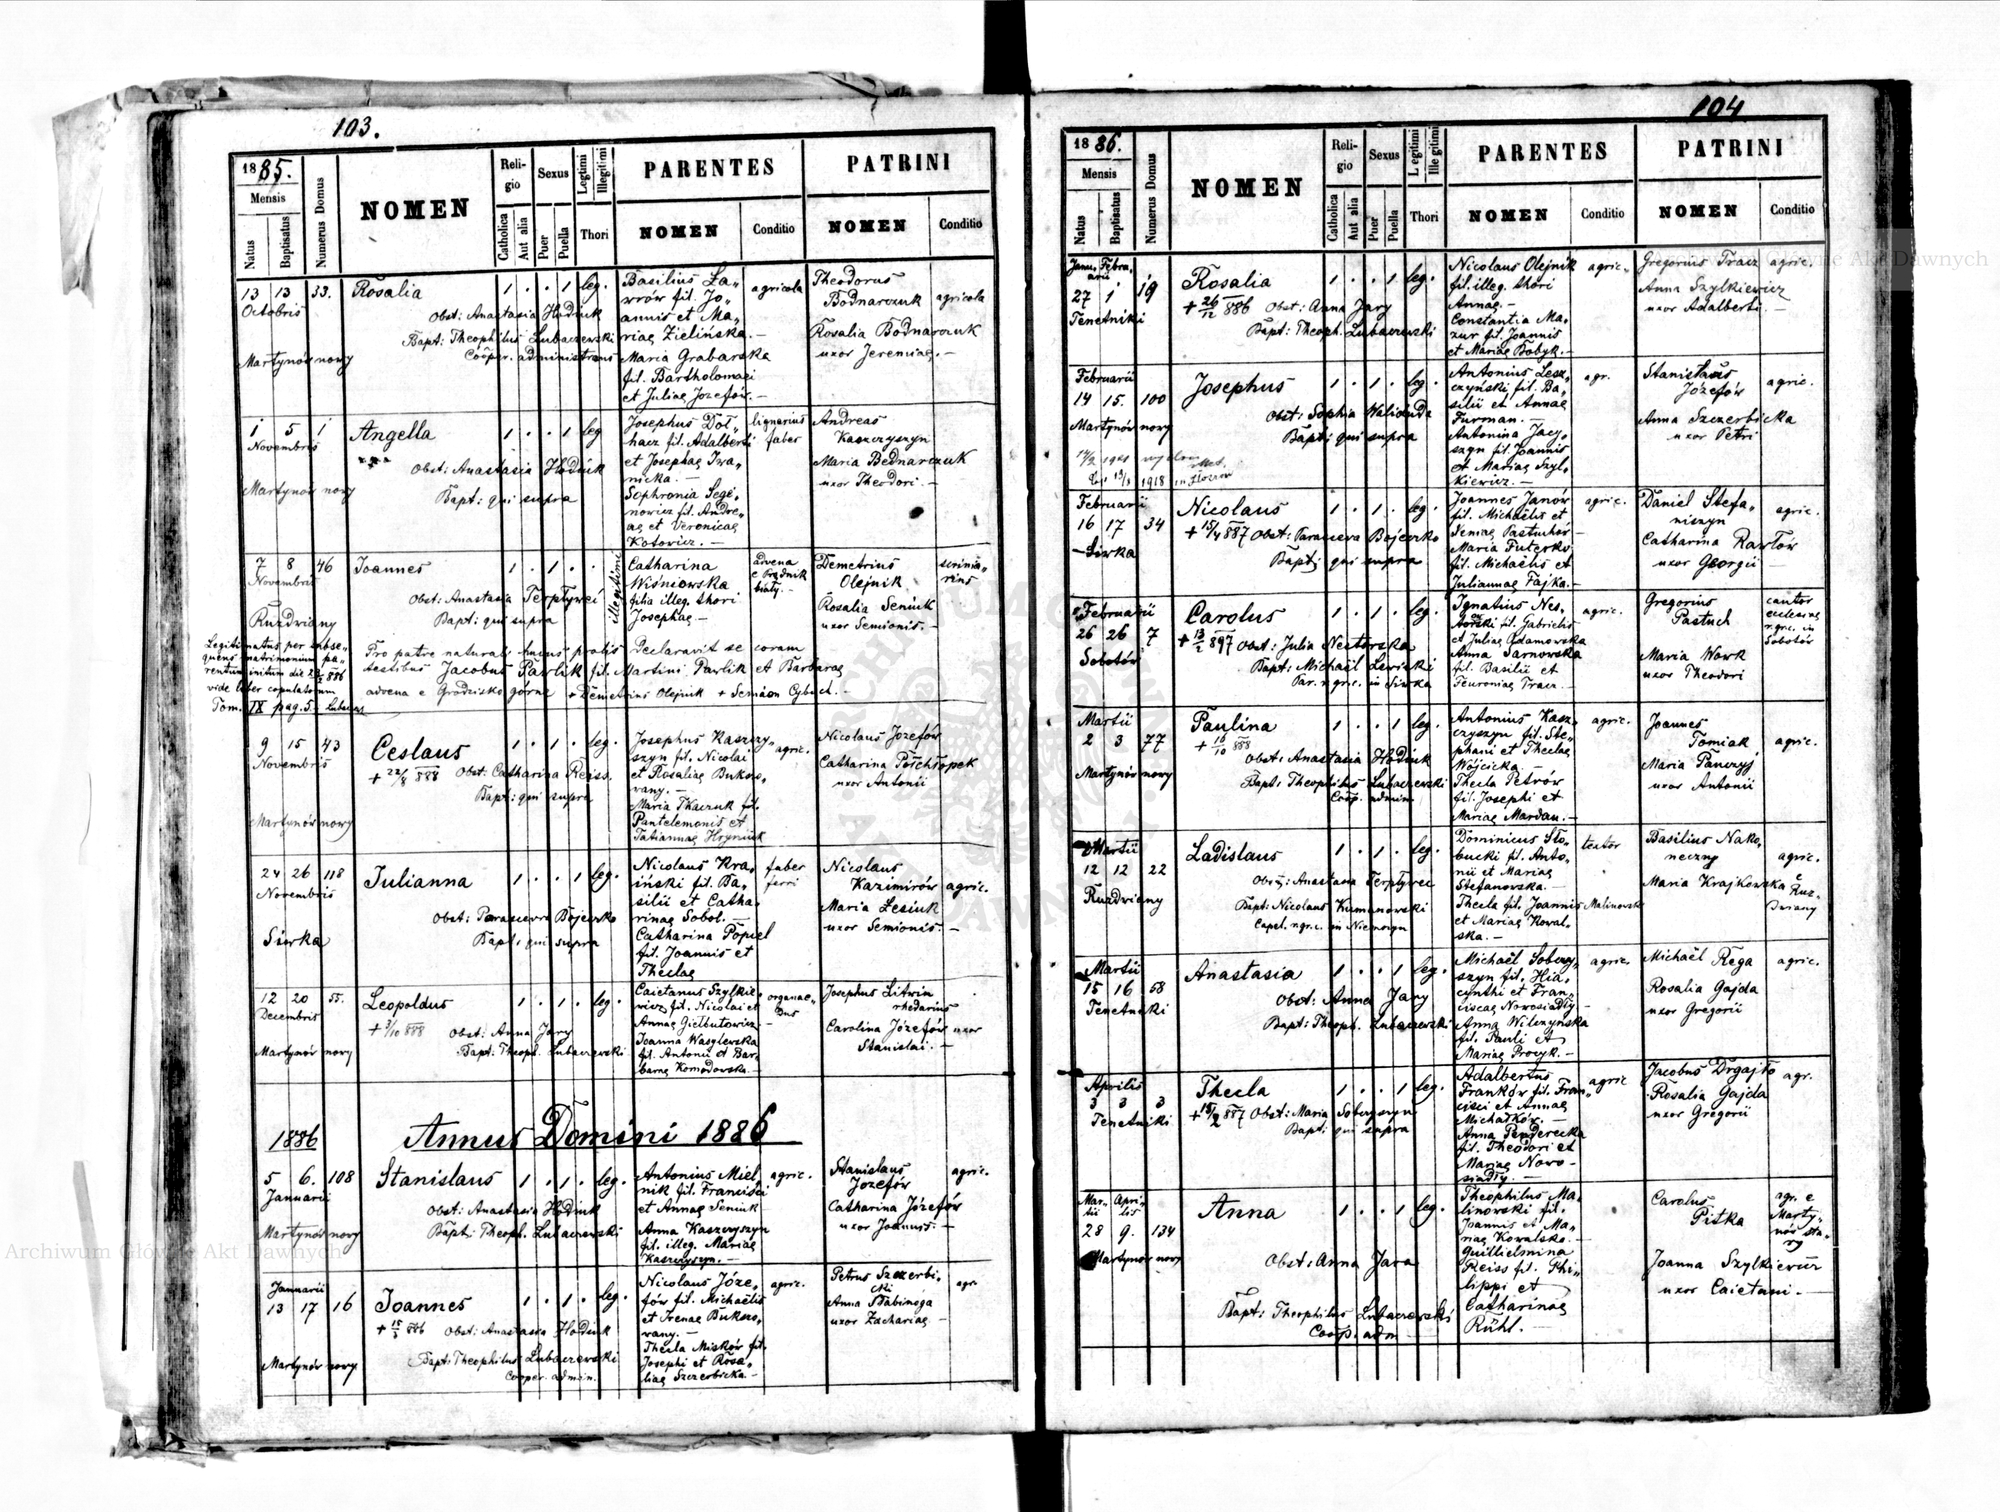 103.
1885.
Mensis
Natus
Baptisatus
Numerus Domus
NOMEN
Religio
Catholica
Aut alia
Sexus
Puer
Puella
Legitimi
Illegitimi
Thori
PARENTES
NOMEN
Conditio
PATRINI
NOMEN
Conditio
13 13 33.
Octobris
Martynów nowy
Rosalia
1 . . 1 leg.
Obst: Anastasia Hodiuk
Bapt: Theophilus Lubaczewski
Cooper. administrans
Basilius Ła-
wrów fil. Jo-
annis et Ma-
riae Zielińska.—
Maria Grabarska
fil. Bartholomaei
et Juliae Jozefów.—
agricola
Theodorus
Bodnarczuk
Rosalia Bodnarczuk
uxor Jeremiae.—
agricola
1 5 1
Novembris
Martynów nowy
Angella
1 . . 1 leg
Obst: Anastasia Hodiuk
Bapt: qui supra
Josephus Doł-
hacz fil. Adalberti
et Josephae Iwa-
nicka.—
Sophronia Sege-
nowicz fil. Andre-
ae et Veronicae
Kotowicz.—
lignarius
faber
Andreas
Kaszczyszyn
Maria Bednarczuk
uxor Theodori.—
7 8 46
Novembris
Ruzdwiany
Joannes
1 . 1 .
illegitimi
Obst: Anastasia Terptywci
Bapt: qui supra
Catharina
Wiśniowska
filia illeg. thori
Josephae—
advena
e Prądnik
biały.—
Demetrius
Olejnik
Rosalia Seniuk
uxor Semionis.—
scrinia-
rius
Legitimatus per subse-
quens matrimonium pa-
rentum initum die
vide liber copulatorum
Tom. IX pag. 5.
Pro patre naturali hujus prolis Declaravit se coram
testibus Jacobus Pavlik fil. Martini Pavlik et Barbarae
advena e Grodzisko górne + Demetrius Olejnik + Semion Cybuch.—
9 15 43
Novembris
Martynów nowy
Ceslaus
+ 22/8 888
1 . 1 . leg.
Obst: Catharina Reiss.
Bapt: qui supra
Josephus Kaszczy-
szyn fil. Nicolai
et Rosaliae Bukow-
rany.—
Maria Tkaczuk fil.
Pantelemonis et
Tatiannae Hryniuk
agric.
Nicolaus Jozefów
Catharina Półchłopek
uxor Antonii
24 26 118
Novembris
Siwka
Julianna
1 . . 1 leg.
Obst: Parascevia Bojeczko
Bapt: qui supra
Nicolaus Kra-
iński fil. Ba-
silii et Catha-
rinae Sobol.—
Catharina Popiel
fil. Joannis et
Theclae
faber
ferri
Nicolaus
Kazimirów
Maria Łesiuk
uxor Semionis.—
agric.
12 20 55.
Decembris
Martynów nowy
Leopoldus
+ 3/10 888
1 . 1 . leg.
Obst: Anna Jary
Bapt: Theoph. Lubaczewski
Caietanus Szylkie-
wicz fil. Nicolai et
Annae Giełbutowicz.—
Joanna Wasylewska
fil. Antonii et Bar-
barae Komodowska.—
Josephus Litwin
rhedarius
Carolina Józefów uxor
Stanislai.—
1886
Annus Domini 1886
5 6. 108
Januarii
Martynów nowy
Stanislaus
1 . 1 . leg.
Obst: Anastasia Hodiuk
Bapt: Theoph. Lubaczewski
Antonius Miel
nik fil. Francisci
et Annae Seniuk
Anna Kaszczyszyn
fil. illeg. Mariae
Kaszczyszyn.—
agric.
Stanislaus
Jozefów
Catharina Józefów
uxor Joannis.—
agric.
Januarii
13 17 16
Martynów nowy
Joannes
+ 15/3 886
1 . 1 . leg.
Obst: Anastasia Hodiuk
Bapt: Theophilus Lubaczewski
Cooper. admin.
Nicolaus Józe-
fów fil. Michaëlis
et Irenae Bukow-
rany.—
Thecla Misków fil.
Josephi et Rosa-
liae Szczerbicka.—
agric.
Petrus Szczerbi-
cki
Anna Babinoga
uxor Zachariae—
agr.
104
1886.
Mensis
Natus
Baptisatus
Numerus Domus
NOMEN
Religio
Catholica
Aut alia
Sexus
Puer
Puella
Legitimi
Illegitimi
Thori
PARENTES
NOMEN
Conditio
PATRINI
NOMEN
Conditio
Janu. Febru-
arii
27 1 19
Tenetniki
Rosalia
+ 26/12 886
1 . . 1 leg.
Obst: Anna Jary
Bapt: Theoph. Lubaczewski
Nicolaus Olejnik
fil. illeg. thori
Annae.—
Constantia Ma-
zur fil. Joannis
et Mariae Bobyk.—
agric.
Gregorius Tracz
Anna Szylkiewicz
uxor Adalberti.—
agric.
Februarii
14 15. 100
Martynów nowy
Josephus
1 . 1 . leg.
Obst: Sophia Waliduda
Bapt: qui supra
Antonius Lesz-
czyński fil. Ba-
silii et Annae
Furman.
Antonina Jacy-
szyn fil. Joannis
et Mariae Szyl-
kiewicz.—
agr.
Stanislaus
Józefów
Anna Szczerbicka
uxor Petri
agric.
Februarii
16 17 34
Siwka
Nicolaus
+ 15/4 887
1 . 1 . leg.
Obst: Parasceva Bojeczko
Bapt: qui supra
Joannes Janów
fil. Michaëlis et
Xeniae Pastuchów
Maria Futerko
fil. Michaëlis et
Juliannae Fajka.—
agric.
Daniel Stefa-
niszyn
Catharina Rawlów
uxor Georgii
agric.
Februarii
26 26 7
Sobotów
Carolus
+ 13/2 897
1 . 1 . leg.
Obst: Julia Nestorska
Bapt: Michaël Lewicki
Par. r.gr.c. in Siwka
Ignatius Nes-
torski fil. Gabrielis
et Juliae Adamowska
Anna Sarnowska
fil. Basilii et
Feuroniae Tracz.—
agric.
Gregorius
Pastuch
Maria Work
uxor Theodori
cantor
ecclesiae
r.gr.c. in
Sobotów
Martii
2 3 77
Martynów nowy
Paulina
+ 16/10 888
1 . . 1 leg.
Obst: Anastasia Hodiuk
Bapt: Theophilus Lubaczewski
Coop. admin
Antonius Kasz-
czyszyn fil. Ste-
phani et Theclae
Wójcicka.—
Thecla Petrów
fil. Josephi et
Mariae Mardan.—
agric.
Joannes
Tomiak
Maria Panczyj
uxor Antonii
agric.
Martii
12 12 22
Ruzdwiany
Ladislaus
1 . 1 . leg.
Obst: Anastasia Terptywec
Bapt: Nicolaus Kumanowski
Capel. r.gr.c. in Niemszyn
Dominicus Sło-
bucki fil. Anto-
nii et Mariae
Stefanowska.—
Thecla fil. Joannis Malinowski
et Mariae Kowal-
ska.—
textor
Basilius Nako-
neczny
Maria Krajkowska
agric.
e Ruz-
dwiany
Martii
15 16 68
Tenetniki
Anastasia
1 . . 1 leg.
Obst: Anna Jary
Bapt: Theoph. Lubaczewski
Michaël Soberzy-
szyn fil. Hia-
cynthi et Fran-
ciscae Nowosiadły—
Anna Wilczyńska
fil. Pauli et
Mariae Procyk.—
agric.
Michaël Rega
Rosalia Gajda
uxor Gregorii
agric.
Aprilis
3 3 3
Tenetniki
Thecla
+ 15/2 887
1 . . 1 leg.
Obst: Maria Soberzyszyn
Bapt: qui supra
Adalbertus
Franków fil. Fran-
cisci et Annae
Michałków.—
Anna Penderecka
fil. Theodori et
Mariae Nowo-
siadły.—
agric
Jacobus Drgajło
Rosalia Gajda
uxor Gregorii
agr.
Mar- Apri-
tii lis
28 9. 134
Martynów nowy
Anna
1 . . 1 leg.
Obst: Anna Jara
Bapt: Theophilus Lubaczewski
Coop. adm
Theophilus Ma-
linowski fil.
Joannis et Ma-
riae Kowalsko.—
Guillielmina
Reiss fil. Phi-
lippi et
Catharinae
Rühl.—
Carolus
Pitka
Joanna Szylkiewicz
uxor Caietani.—
agr. e
Marty-
nów sta-
ry
Archiwum Główne Akt Dawnych
Archiwum Główne Akt Dawnych